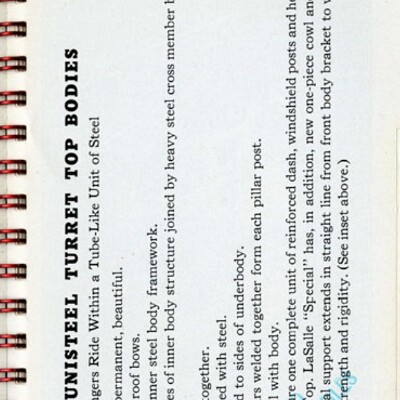 UNISTEEL TURRET TOP BODIES
ngers Ride Within a Tube-Like Unit of Steel
permanent, beautiful.
roof bows.
nner steel body framework.
es of inner body structure joined by heavy steel cross member b
ogether.
ed with steel.
d to sides of underbody.
rs welded together form each pillar post.
l with body.
are one complete unit of reinforced dash, windshield posts and he
op. LaSalle "Special" has, in addition, new one-piece cowl and
al support extends in straight line from front body bracket to v
trength and rigidity. (See inset above.)